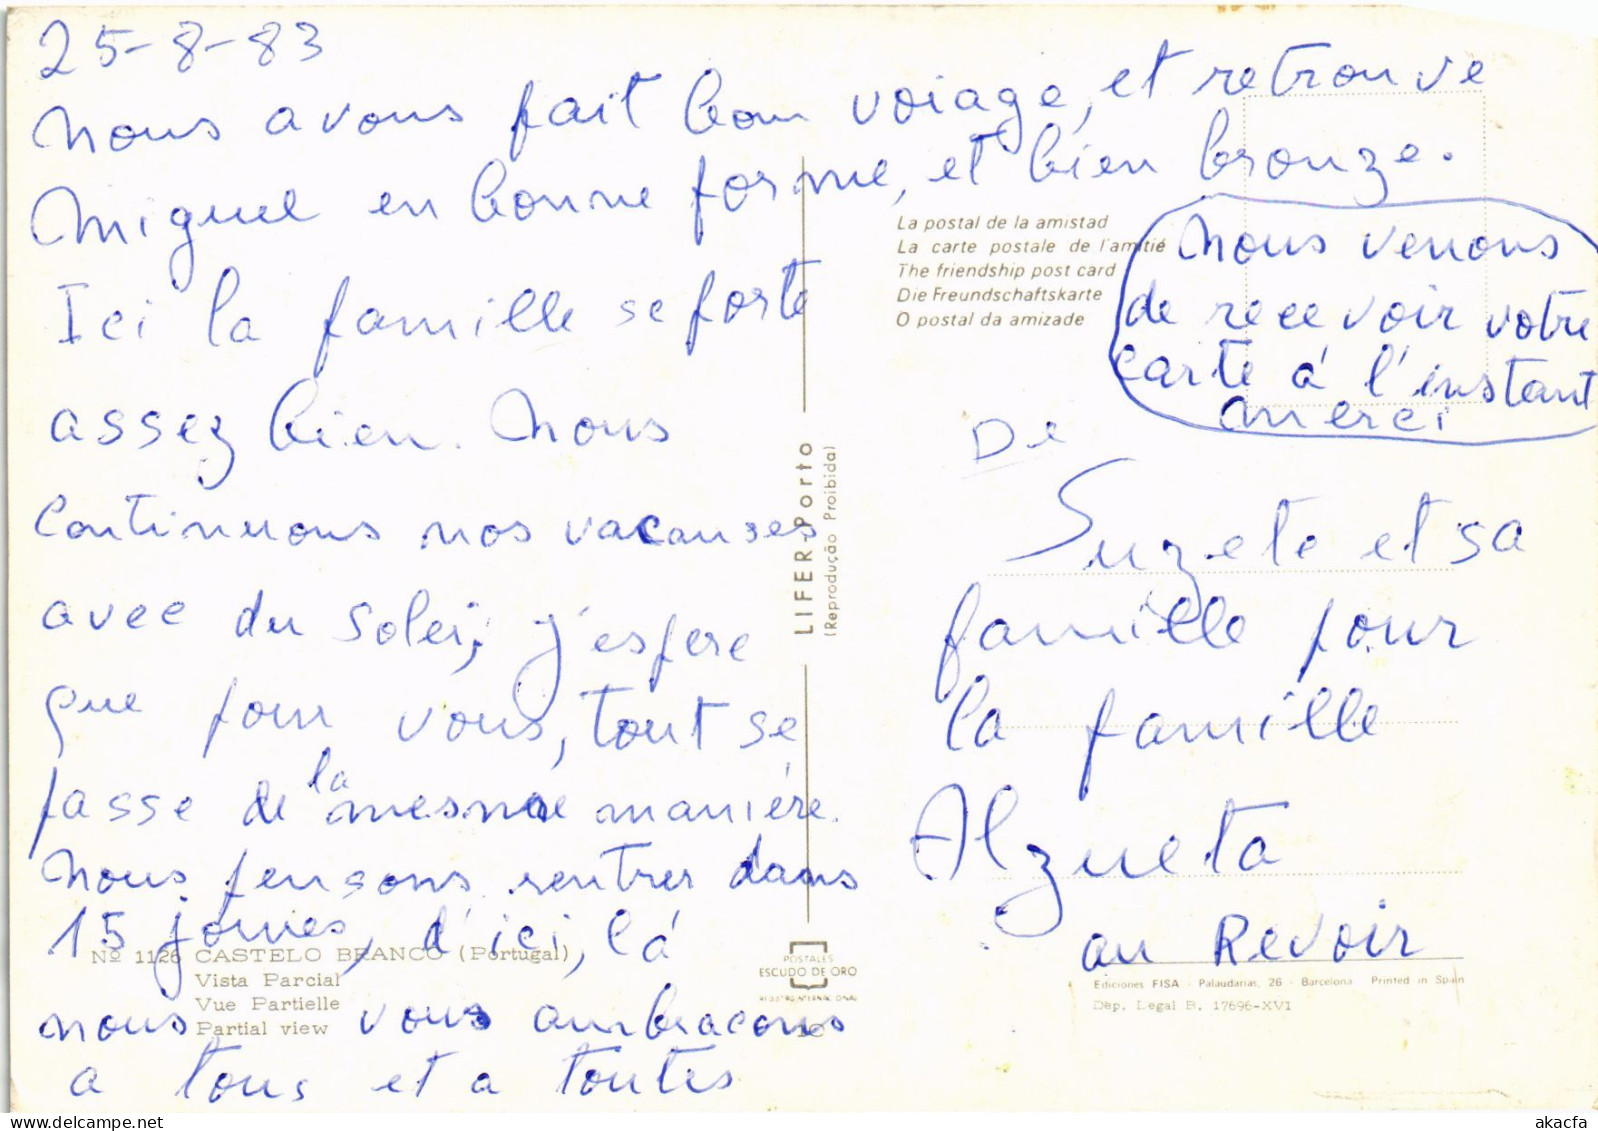 25-8-83
Nous avons fait bon voiage, et retrouve
Miguel en bonne forme, et bien bronze.
Ici la famille se porte
assez bien. Nous
continuons nos vacanses
avec du solei, j'espere
que pour vous, tout se
passe de la mesme maniére.
Nous pensons rentrer dans
15 jornes, d'ici, lá
nous vous ambracons
a tous et a toutes
Nº 1126 CASTELO BRANCO (Portugal)
Vista Parcial
Vue Partielle
Partial view
LIFER-Porto
(Reprodução Proibida)
POSTALES
ESCUDO DE ORO
REGISTRO INTERNACIONAL
La postal de la amistad
La carte postale de l'amitié
The friendship post card
Die Freundschaftskarte
O postal da amizade
Nous venons
de recevoir votre
carte á l'instant
merci
De
Suzete et sa
famille pour
la famille
Alzueta
au Revoir
Ediciones FISA - Palaudarias, 26 - Barcelona Printed in Spain
Dep. Legal B. 17696-XVI
akacfa